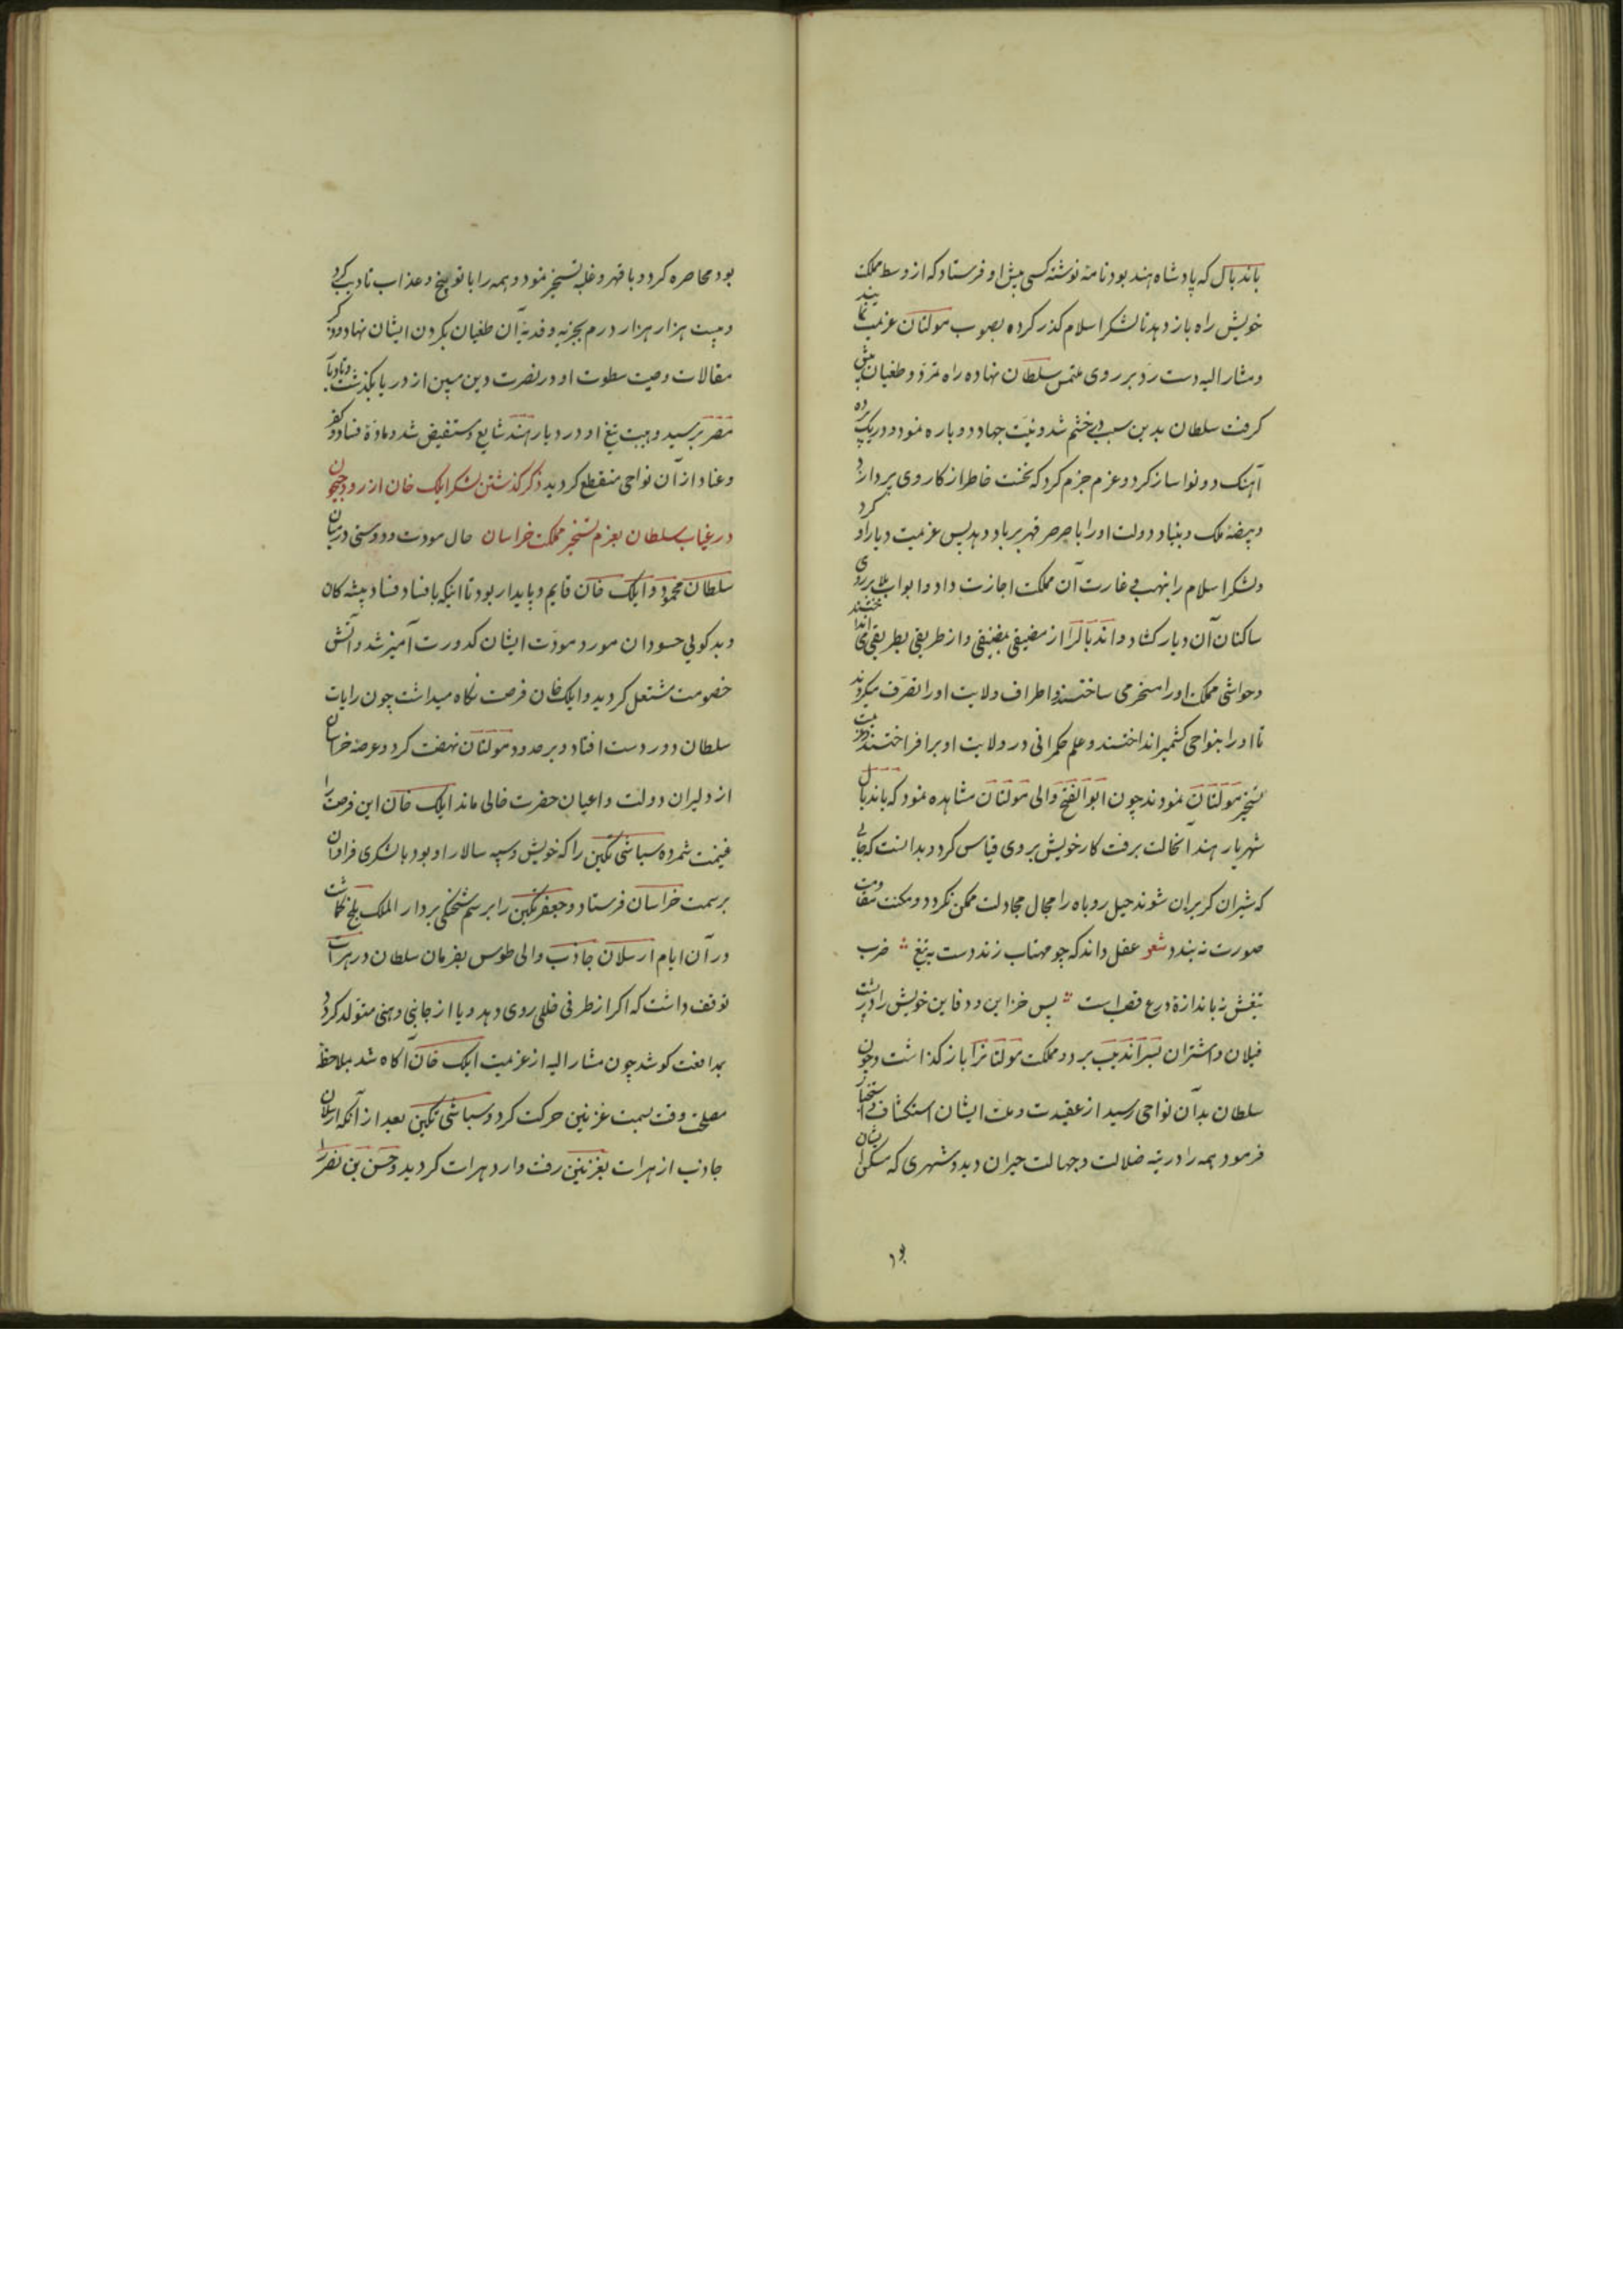 باندبال که پادشاه هند بود نامه نوشته کسی پیش او فرستاد که از وسط مملکت
خویش راه باز دهد تا لشکر اسلام کذر کرده بصوب مولتان عزیمت نمایند
ومشار الیه دست رد بر روی ملتمس سلطان نهاده راه تمرد و طغیان پیش
کرفت سلطان بدین سبب در خشم شد ونیت جهاد دوباره نمود ودر یک پرده
آهنک دو نوا ساز کرد وعزم جزم کرد که نخست خاطر از کار وی پردازد
وبیضهٔ ملک وبنیاد دولت او را با صرصر قهر بر باد دهد پس عزیمت دیار او کرد
ولشکر اسلام را بنهب و غارت آن مملکت اجازت داد وابواب بلا بر روی
ساکنان آن دیار کشاد واندبال را از مضیقی بمضیقی واز طریقی بطریقی می انداختند
وحواشی مملکت او را مسخر می ساختند واطراف ولایت او را تصرف میکردند
تا او را بنواحی کشمیر انداختند وعلم حکمرانی در ولایت او بر افراختند
تسخیر مولتان نمودند چون ابو الفتح والی مولتان مشاهده نمود که باندبال
شهریار هند آنحالت برفت کار خویش بر وی قیاس کرد و بدانست که جائی
که شیران کریزان شوند حیل روباه را مجال مجادلت ممکن نکردد ومکنت مقاومت
صورت نه بندد شعر عقل داند که چو مهتاب زند دست به تیغ ضرب
تیغش نه باندازهٔ درع قصب است پس خزاین و دفاین خویش را در پشت
فیلان واشتران بسراندیب برد ومملکت مولتانرا باز کذاشت وچون
سلطان بدآن نواحی رسید از عقیدت وملت ایشان استکشاف واستخبار
فرمود همه را در تیه ضلالت وجهالت حیران دید وشهری که مسکن ایشان
بود محاصره کرد و با قهر و غلبه تسخیر نمود و همه را با توبیخ و عذاب تادیب کرد
وبیست هزار هزار درم بجزیه وفدیهٔ آن طغیان بکردن ایشان نهاد
مقالات وصیت سطوت او در نصرت دین مبین از دریا بکذشت وتا دیار
مصر برسید وهیبت تیغ او در دیار هند شایع ومستفیض شد ومادهٔ فساد وکفر
وعناد از آن نواحی منقطع کردید ذکر کذشتن لشکر ایلک خان از رود جیحون
در غیاب سلطان بعزم تسخیر مملکت خراسان حال مودت ودوستی در میان
سلطان محمود وایلک خان قایم وپایدار بود تا اینکه با فساد فساد پیشه کان
وبدکویی حسودان مورد مودت ایشان کدورت آمیز شد وآتش
خصومت مشتعل کردید وایلک خان فرصت نکاه میداشت چون رایات
سلطان دور دست افتاد وبر حدود مولتان نهضت کرد وعرصهٔ خراسان
از دلیران دولت واعیان حضرت خالی ماند ایلک خان این فرصت را
غنیمت شمرده سباشی تکین را که خویش وسپه سالار او بود با لشکری فراوان
بر سمت خراسان فرستاد وجعفر تکین را برسم شحنکی بر دار الملک بلخ کماشت
در آن ایام ارسلان جاذب والی طوس بفرمان سلطان در هرات
توقف داشت که اکر از طرفی خللی روی دهد ویا از جانبی وهنی متولد کردد
بمدافعت کوشد چون مشار الیه از عزیمت ایلک خان آکاه شد بملاحظهٔ
مصلحت وقت بسمت غزنین حرکت کرد وسباشی تکین بعد از آنکه ارسلان
جاذب از هرات بغزنین رفت وارد هرات کردید وحسن بن نصر را